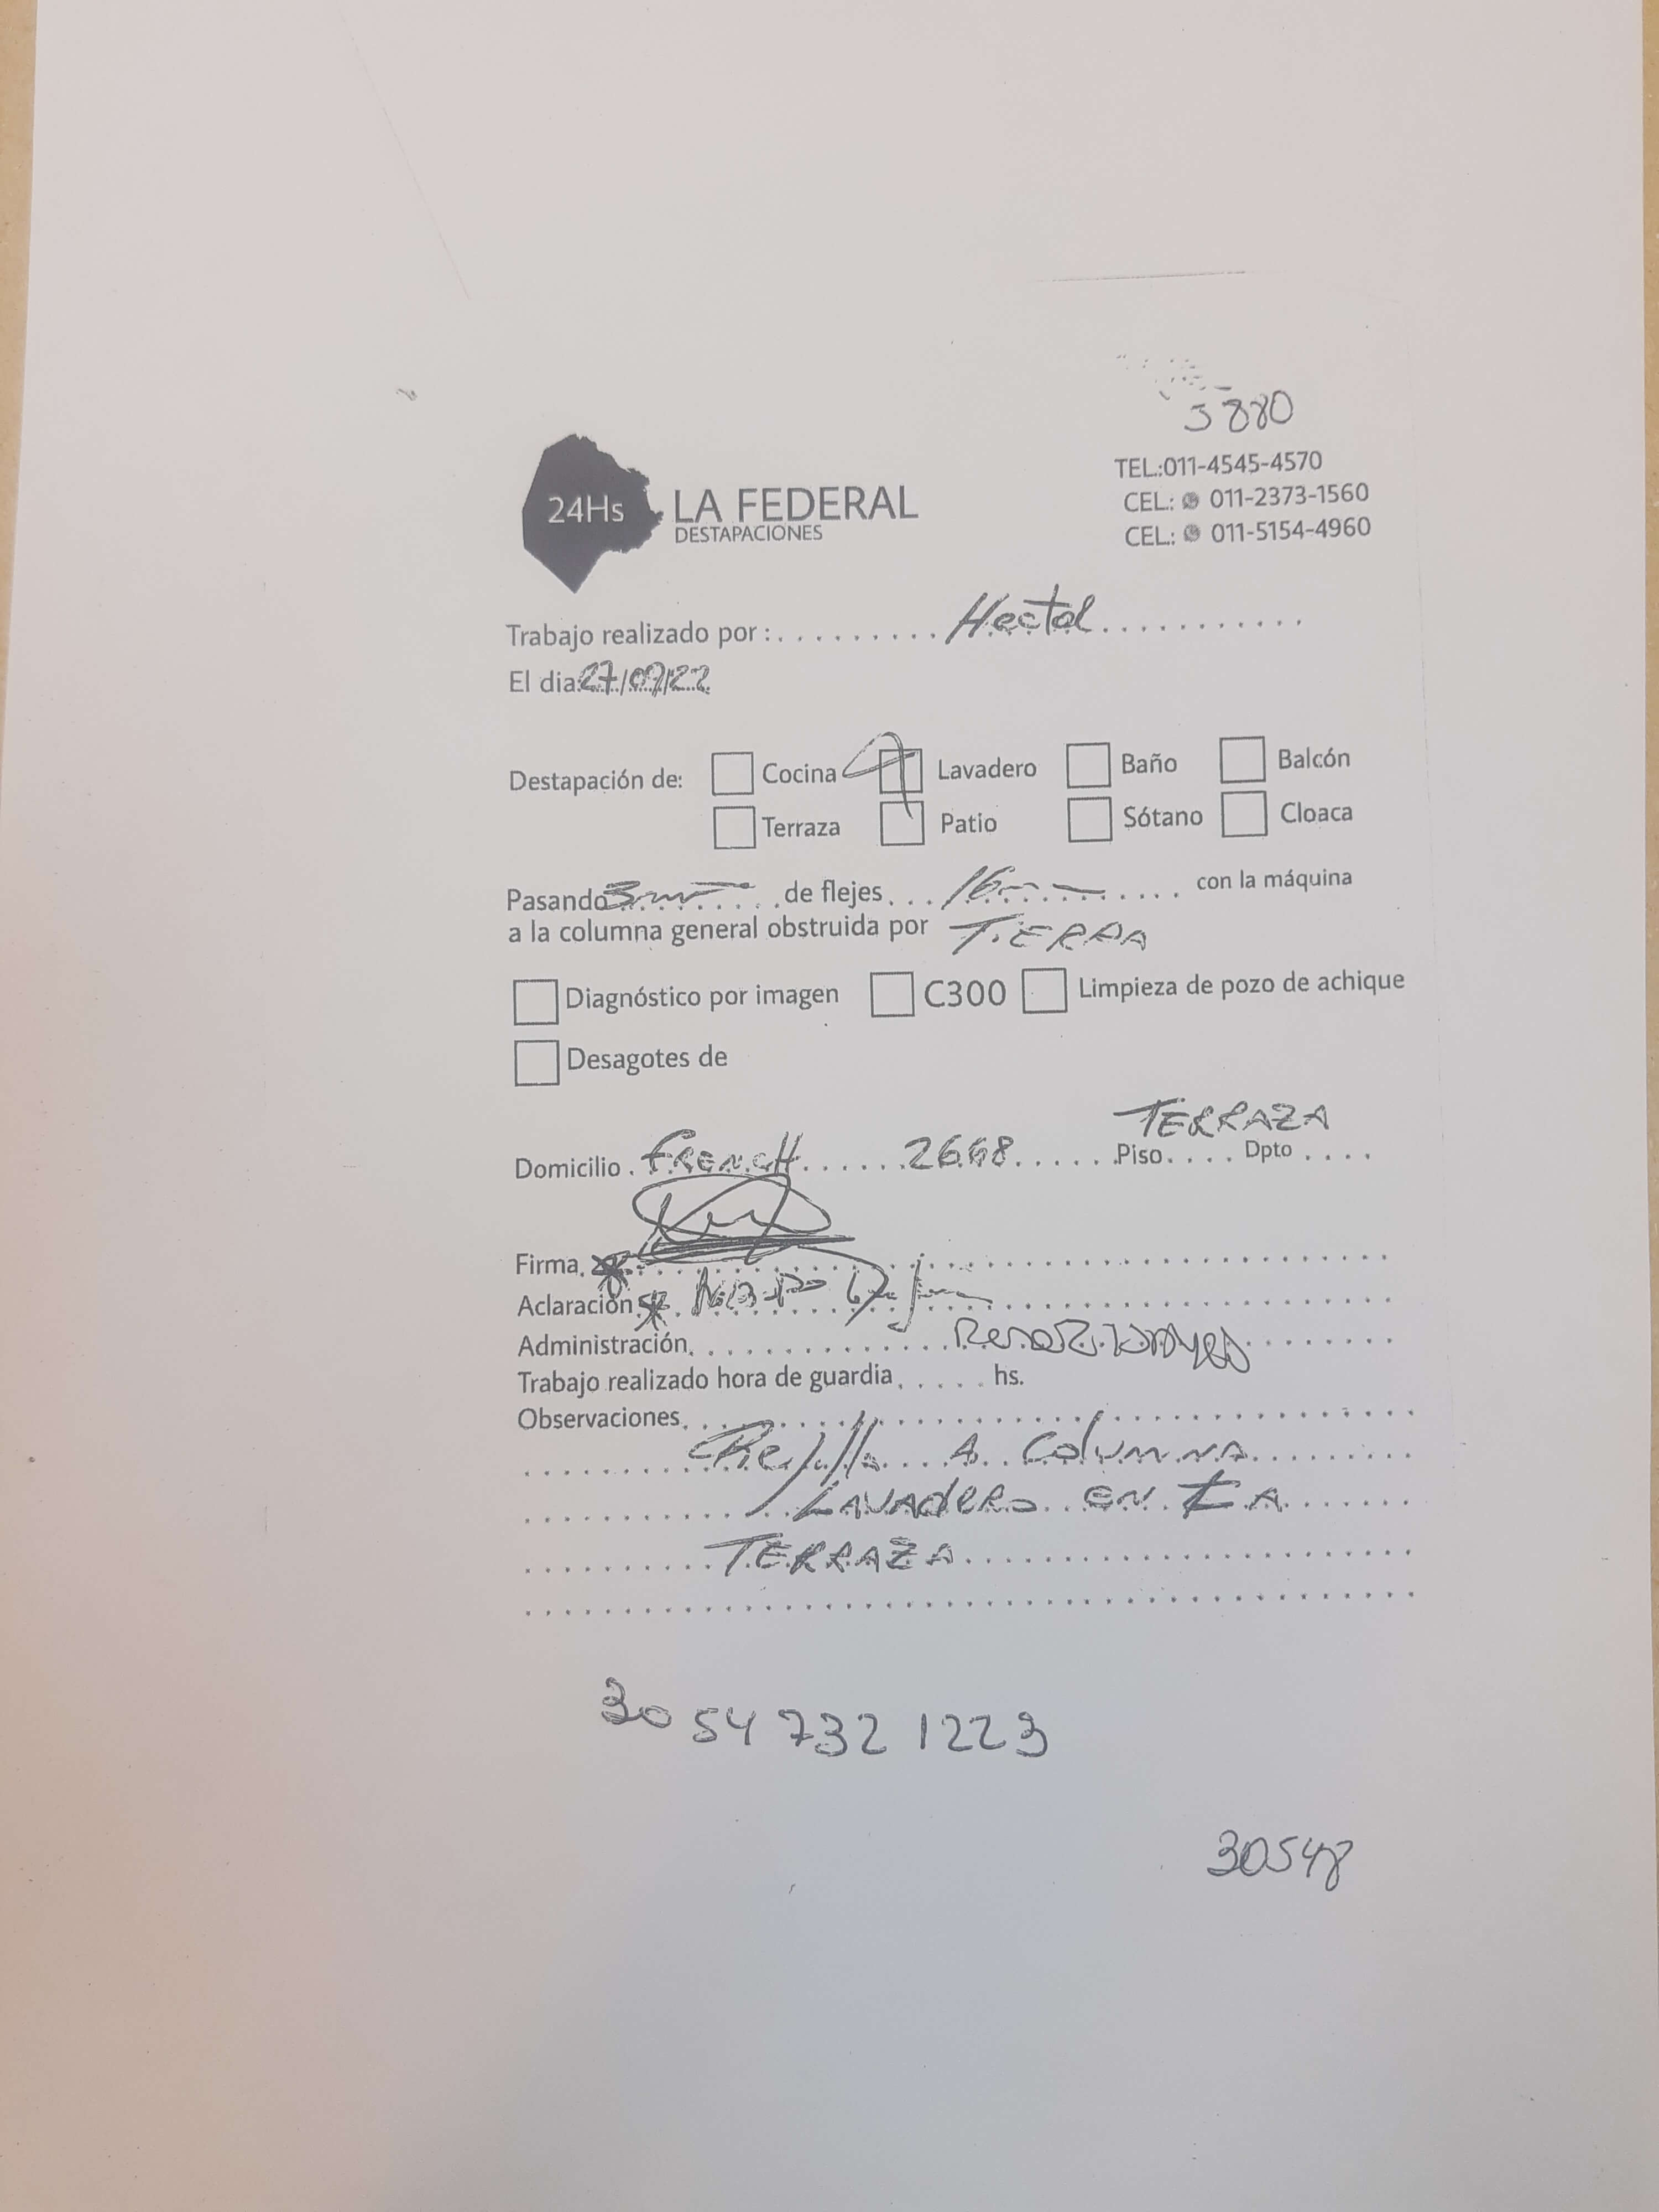 5880
24Hs LA FEDERAL
DESTAPACIONES
TEL.:011-4545-4570
CEL.: 011-2373-1560
CEL.: 011-5154-4960
Trabajo realizado por : Hector
El dia 27/09/22
Destapación de: Cocina Lavadero Baño Balcón
Terraza Patio Sótano Cloaca
Pasando 3m de flejes 16m con la máquina
a la columna general obstruida por TIERRA
Diagnóstico por imagen C300 Limpieza de pozo de achique
Desagotes de
TERRAZA
Domicilio FRENCH 2668 Piso Dpto
Firma
Aclaración
Administración
Trabajo realizado hora de guardia hs.
Observaciones
Rejilla A Columna
LAVADERO EN LA
TERRAZA
30 54 732 1223
30548